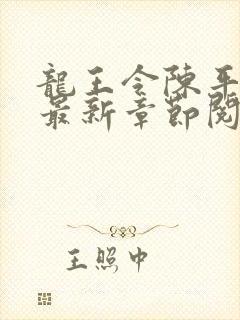 龍王令陳平
最新章節閱
王照中